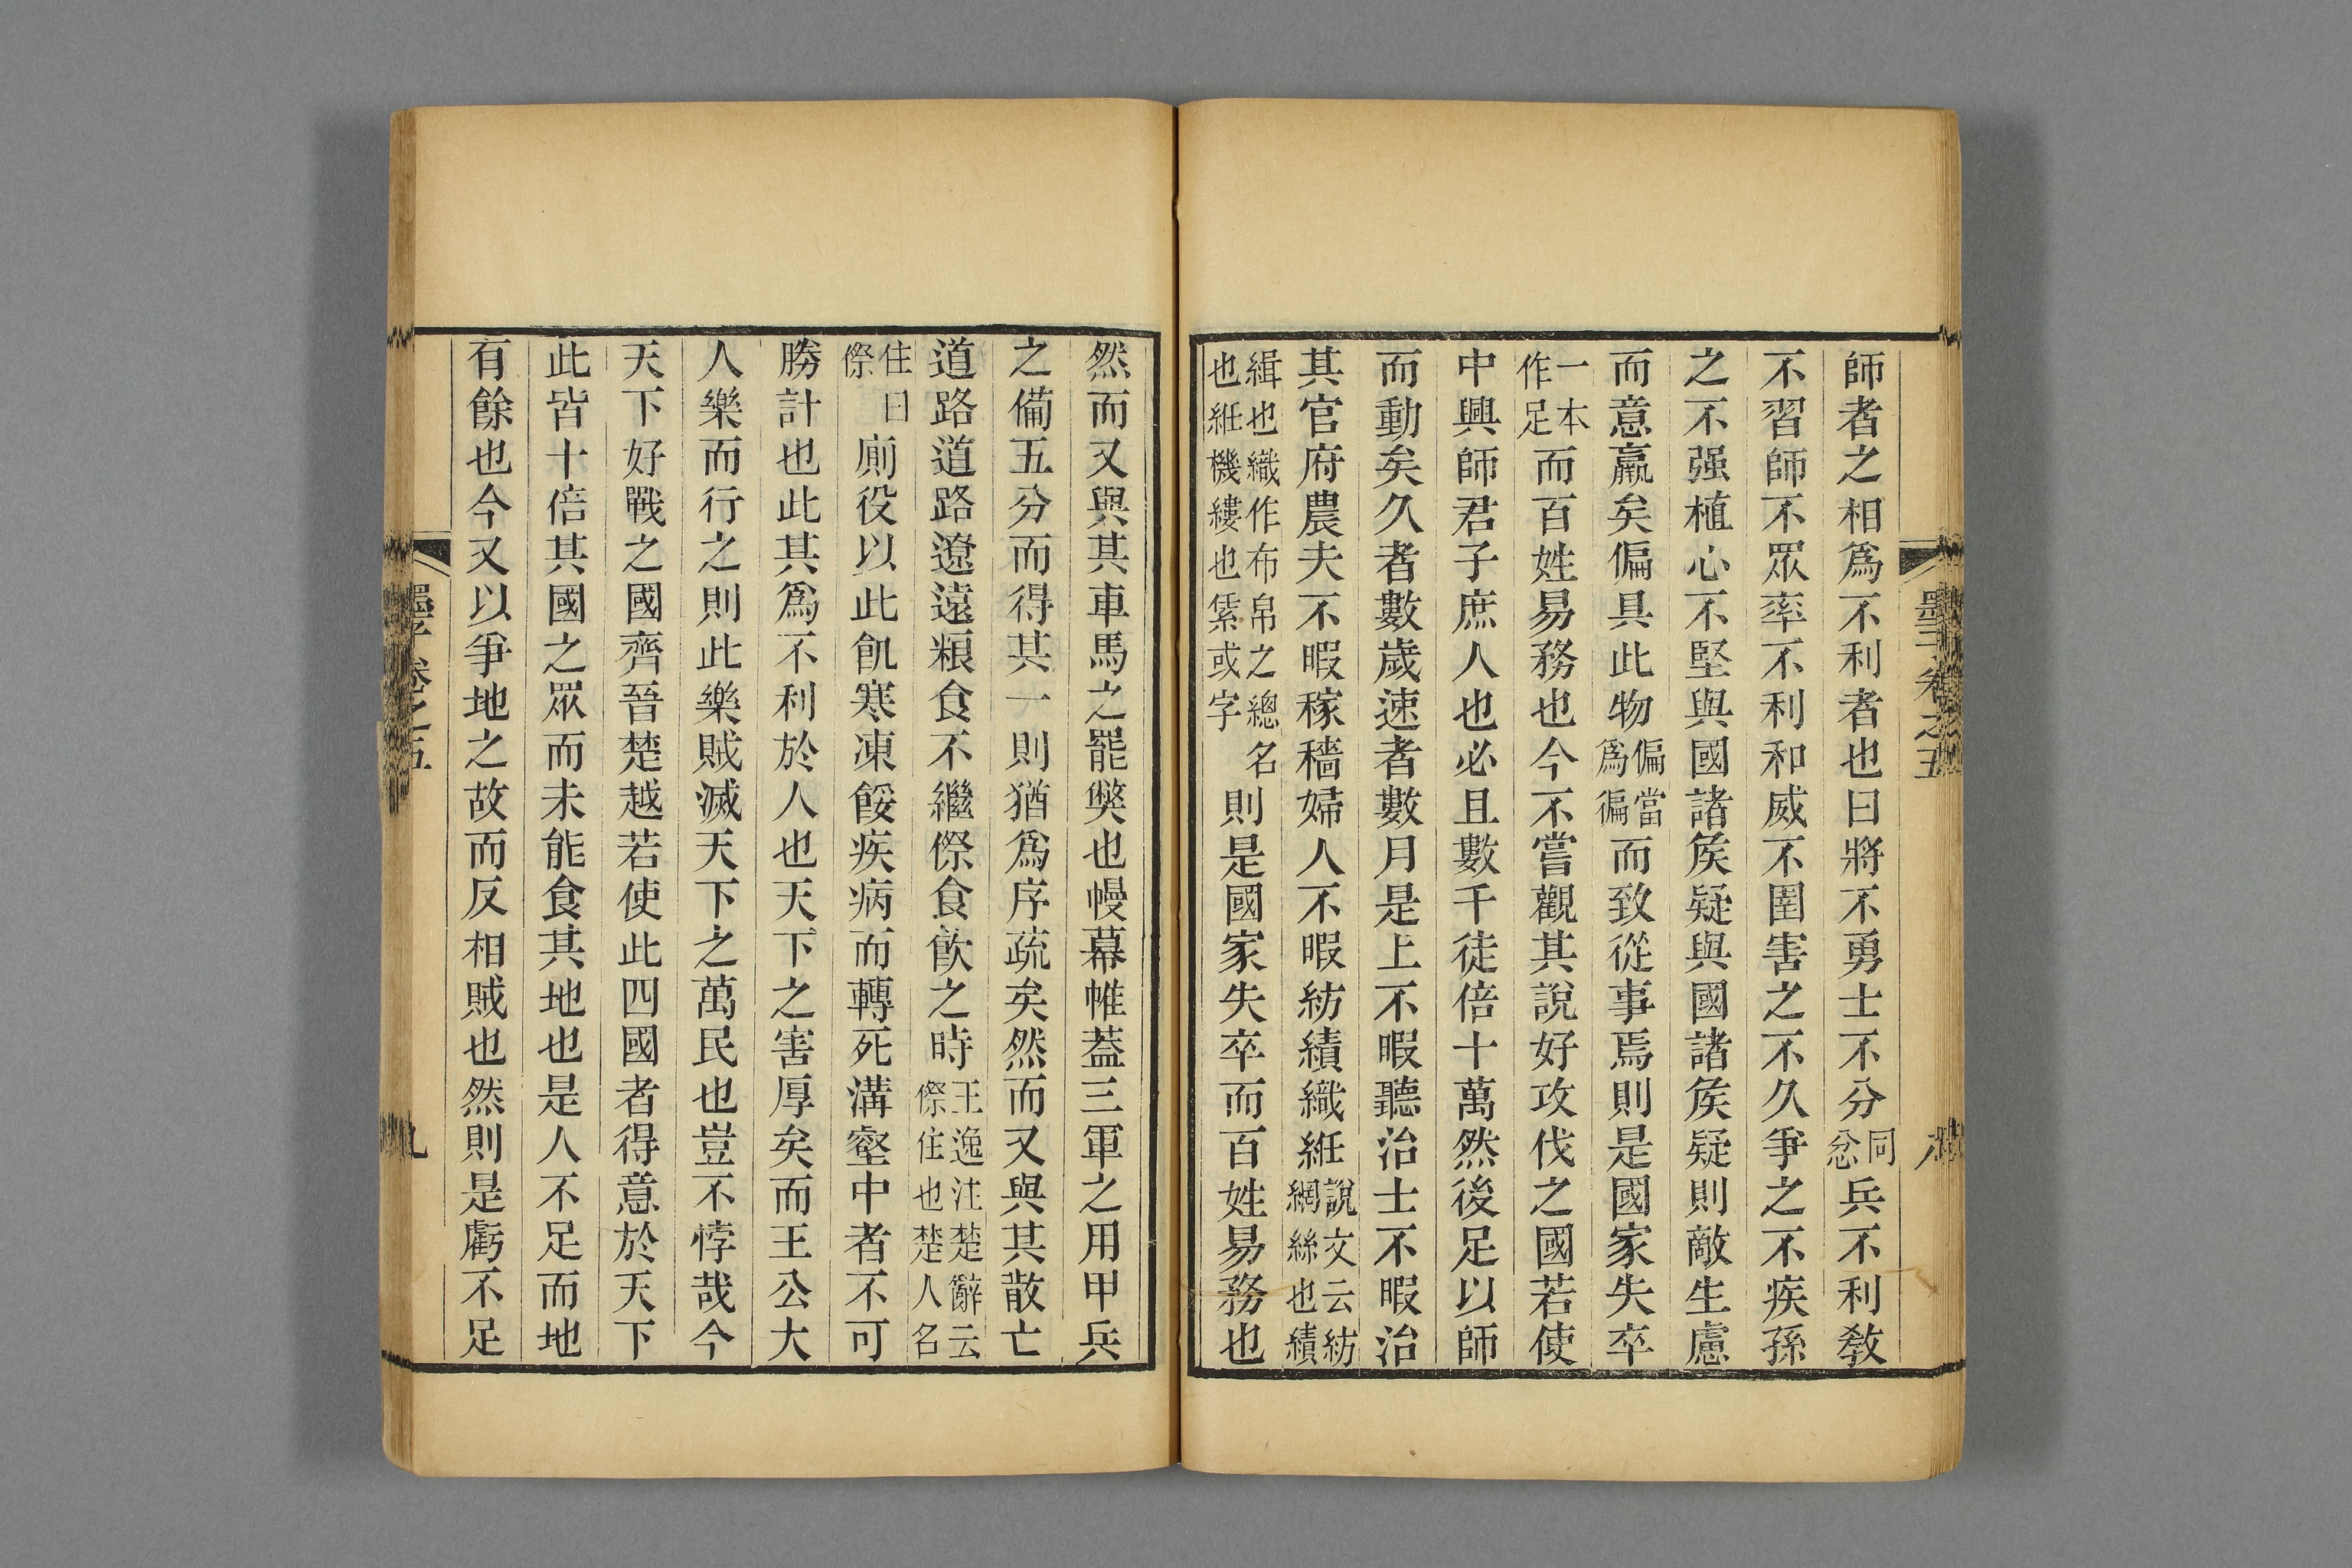 師者之相爲不利者也曰將不勇士不分同忿兵不利敎
不習師不眾率不利和威不圉害之不久爭之不疾孫
之不强植心不堅與國諸矦疑與國諸矦疑則敵生慮
而意羸矣偏具此物偏當爲徧而致從事焉則是國家失卒
一本作足而百姓易務也今不嘗觀其說好攻伐之國若使
中興師君子庶人也必且數千徒倍十萬然後足以師
而動矣久者數歲速者數月是上不暇聽治士不暇治
其官府農夫不暇稼穡婦人不暇紡績織紝說文云紡網絲也績
緝也織作布帛之總名也紝機縷也䋕或字則是國家失卒而百姓易務也
墨子卷之五
八
然而又與其車馬之罷獘也幔幕帷蓋三軍之用甲兵
之備五分而得其一則猶爲序疏矣然而又與其散亡
道路道路遼遠粮食不繼傺食飲之時王逸注楚辭云傺住也楚人名
住曰傺廁役以此飢寒凍餒疾病而轉死溝壑中者不可
勝計也此其爲不利於人也天下之害厚矣而王公大
人樂而行之則此樂賊滅天下之萬民也豈不悖哉今
天下好戰之國齊晉楚越若使此四國者得意於天下
此皆十倍其國之眾而未能食其地也是人不足而地
有餘也今又以爭地之故而反相賊也然則是虧不足
墨子卷之五
九